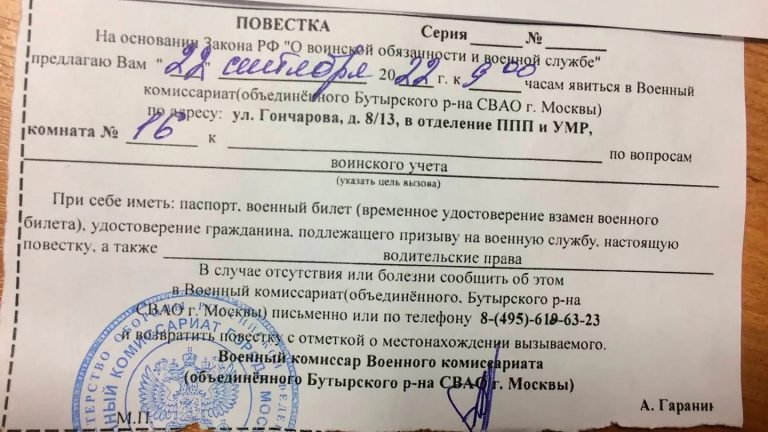 ПОВЕСТКА Серия ____ № ____
На основании Закона РФ "О воинской обязанности и военной службе"
предлагаю Вам "22" сентября 2022 г. к 9 00 часам явиться в Военный
комиссариат(объединённого Бутырского р-на СВАО г. Москвы)
по адресу: ул. Гончарова, д. 8/13, в отделение ППП и УМР,
комната № 16 к ____ по вопросам
воинского учета
(указать цель вызова)
При себе иметь: паспорт, военный билет (временное удостоверение взамен военного
билета), удостоверение гражданина, подлежащего призыву на военную службу, настоящую
повестку, а также водительские права
В случае отсутствия или болезни сообщить об этом
в Военный комиссариат(объединённого, Бутырского р-на
СВАО г. Москвы) письменно или по телефону 8-(495)-619-63-23
и возвратить повестку с отметкой о местонахождении вызываемого.
Военный комиссар Военного комиссариата
(объединённого Бутырского р-на СВАО г. Москвы)
М.П. А. Гаранин